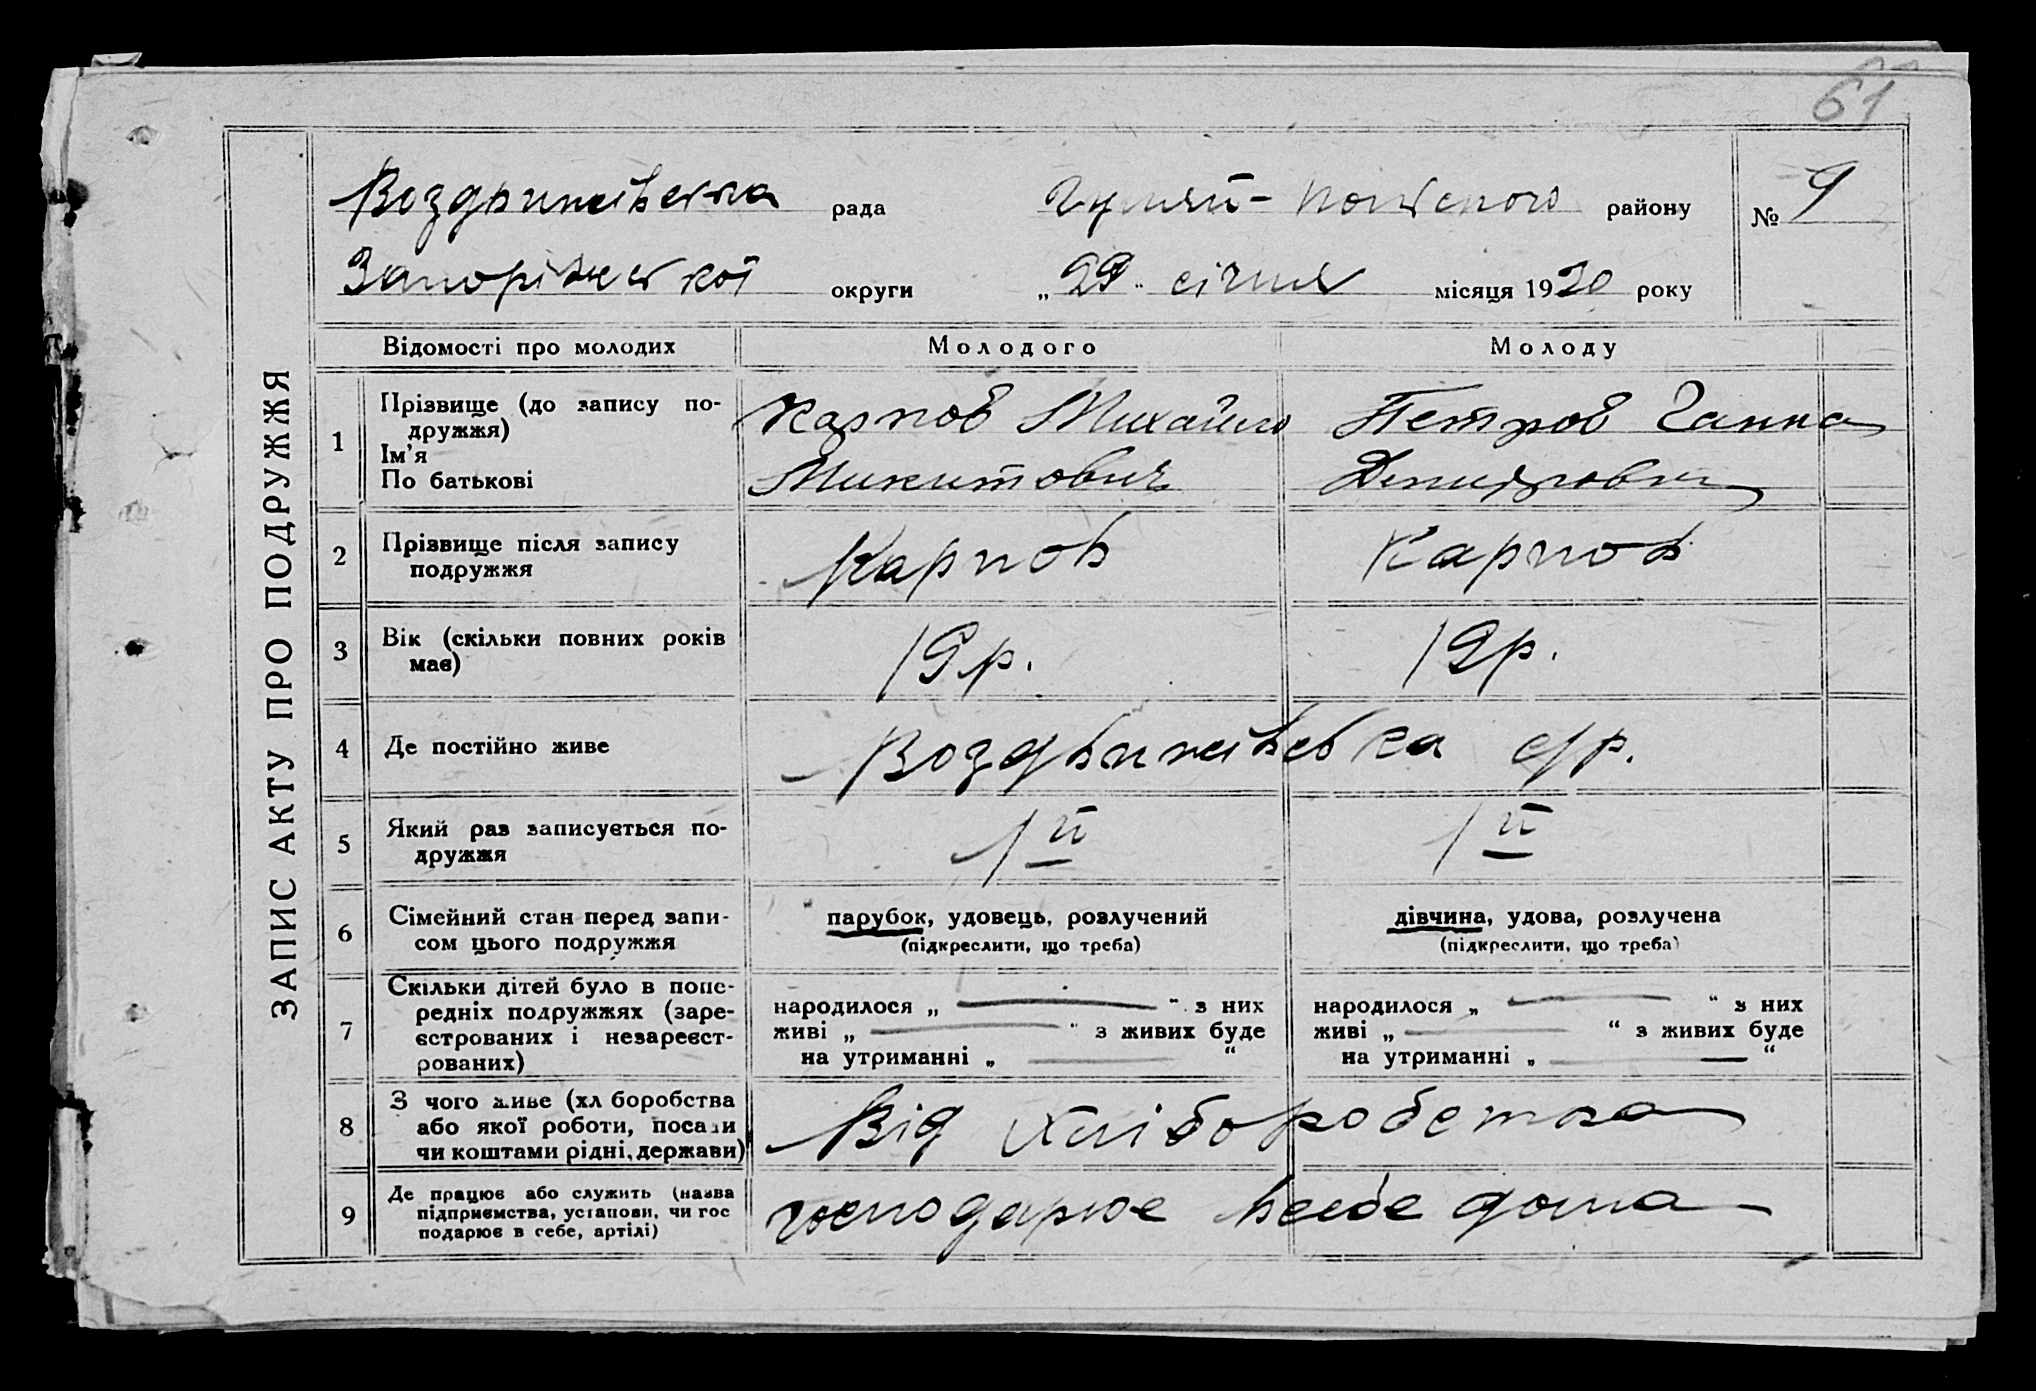 61
Воздвижівська рада Гуляй-Польського району № 9
Запоріжської округи „29“ січня місяця 1930 року
ЗАПИС АКТУ ПРО ПОДРУЖЖЯ
Відомості про молодих Молодого Молоду
1 Прізвище (до запису по-
дружжя)
Ім'я
По батькові
Карпов Михайло
Микитович
Петров Ганна
Дмитровна
2 Прізвище після запису
подружжя
Карпов Карпов
3 Вік (скільки повних років
має)
19р. 19р.
4 Де постійно живе
Воздвижівка с/р.
5 Який раз записується по-
дружжя
1й 1й
6 Сімейний стан перед запи-
сом цього подружжя
парубок, удовець, розлучений
(підкреслити, що треба)
дівчина, удова, розлучена
(підкреслити, що треба)
7 Скільки дітей було в попе-
редніх подружжях (заре-
єстрованих і незареєст-
рованих)
народилося „ — “ з них
живі „ — “ з живих буде
на утриманні „ — “
народилося „ — “ з них
живі „ — “ з живих буде
на утриманні „ — “
8 З чого живе (хл боробства
або якої роботи, посади
чи коштами рідні, держави)
Від хліборобства
9 Де працює або служить (назва
підприємства, установи, чи гос
подарює в себе, артілі)
господарює всебе дома